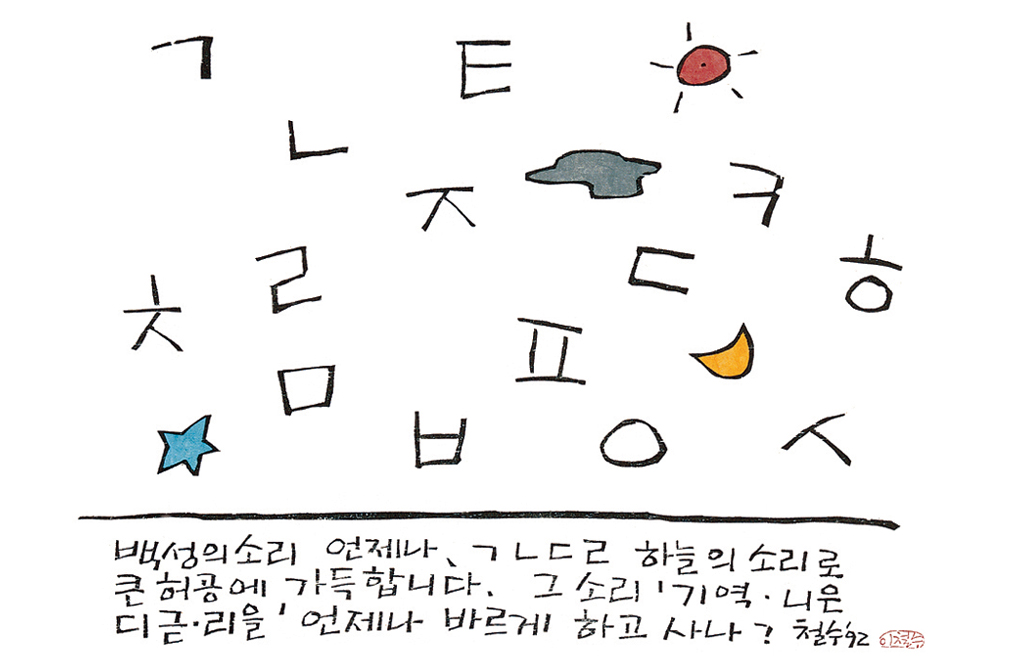 ㄱ ㅌ
ㄴ
ㅈ ㅋ
ㄹ ㄷ ㅎ
ㅊ ㅍ
ㅁ
ㅂ ㅇ ㅅ
백성의소리 언제나、ㄱㄴㄷㄹ 하늘의소리로
큰허공에 가득합니다. 그소리 '기역·니은
디귿·리을' 언제나 바르게 하고 사나? 철수'92
이철수